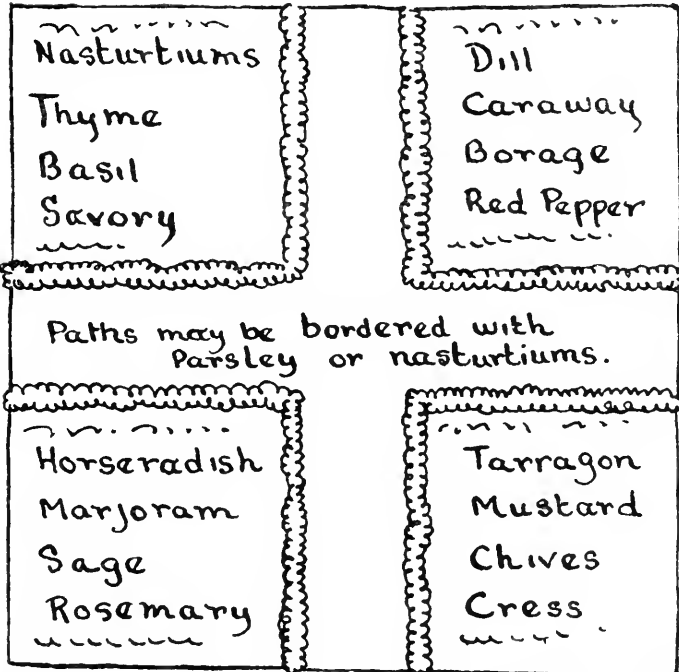 Nasturtiums
Thyme
Basil
Savory
Dill
Caraway
Borage
Red Pepper
Paths may be bordered with
Parsley or nasturtiums.
Horseradish
Marjoram
Sage
Rosemary
Tarragon
Mustard
Chives
Cress